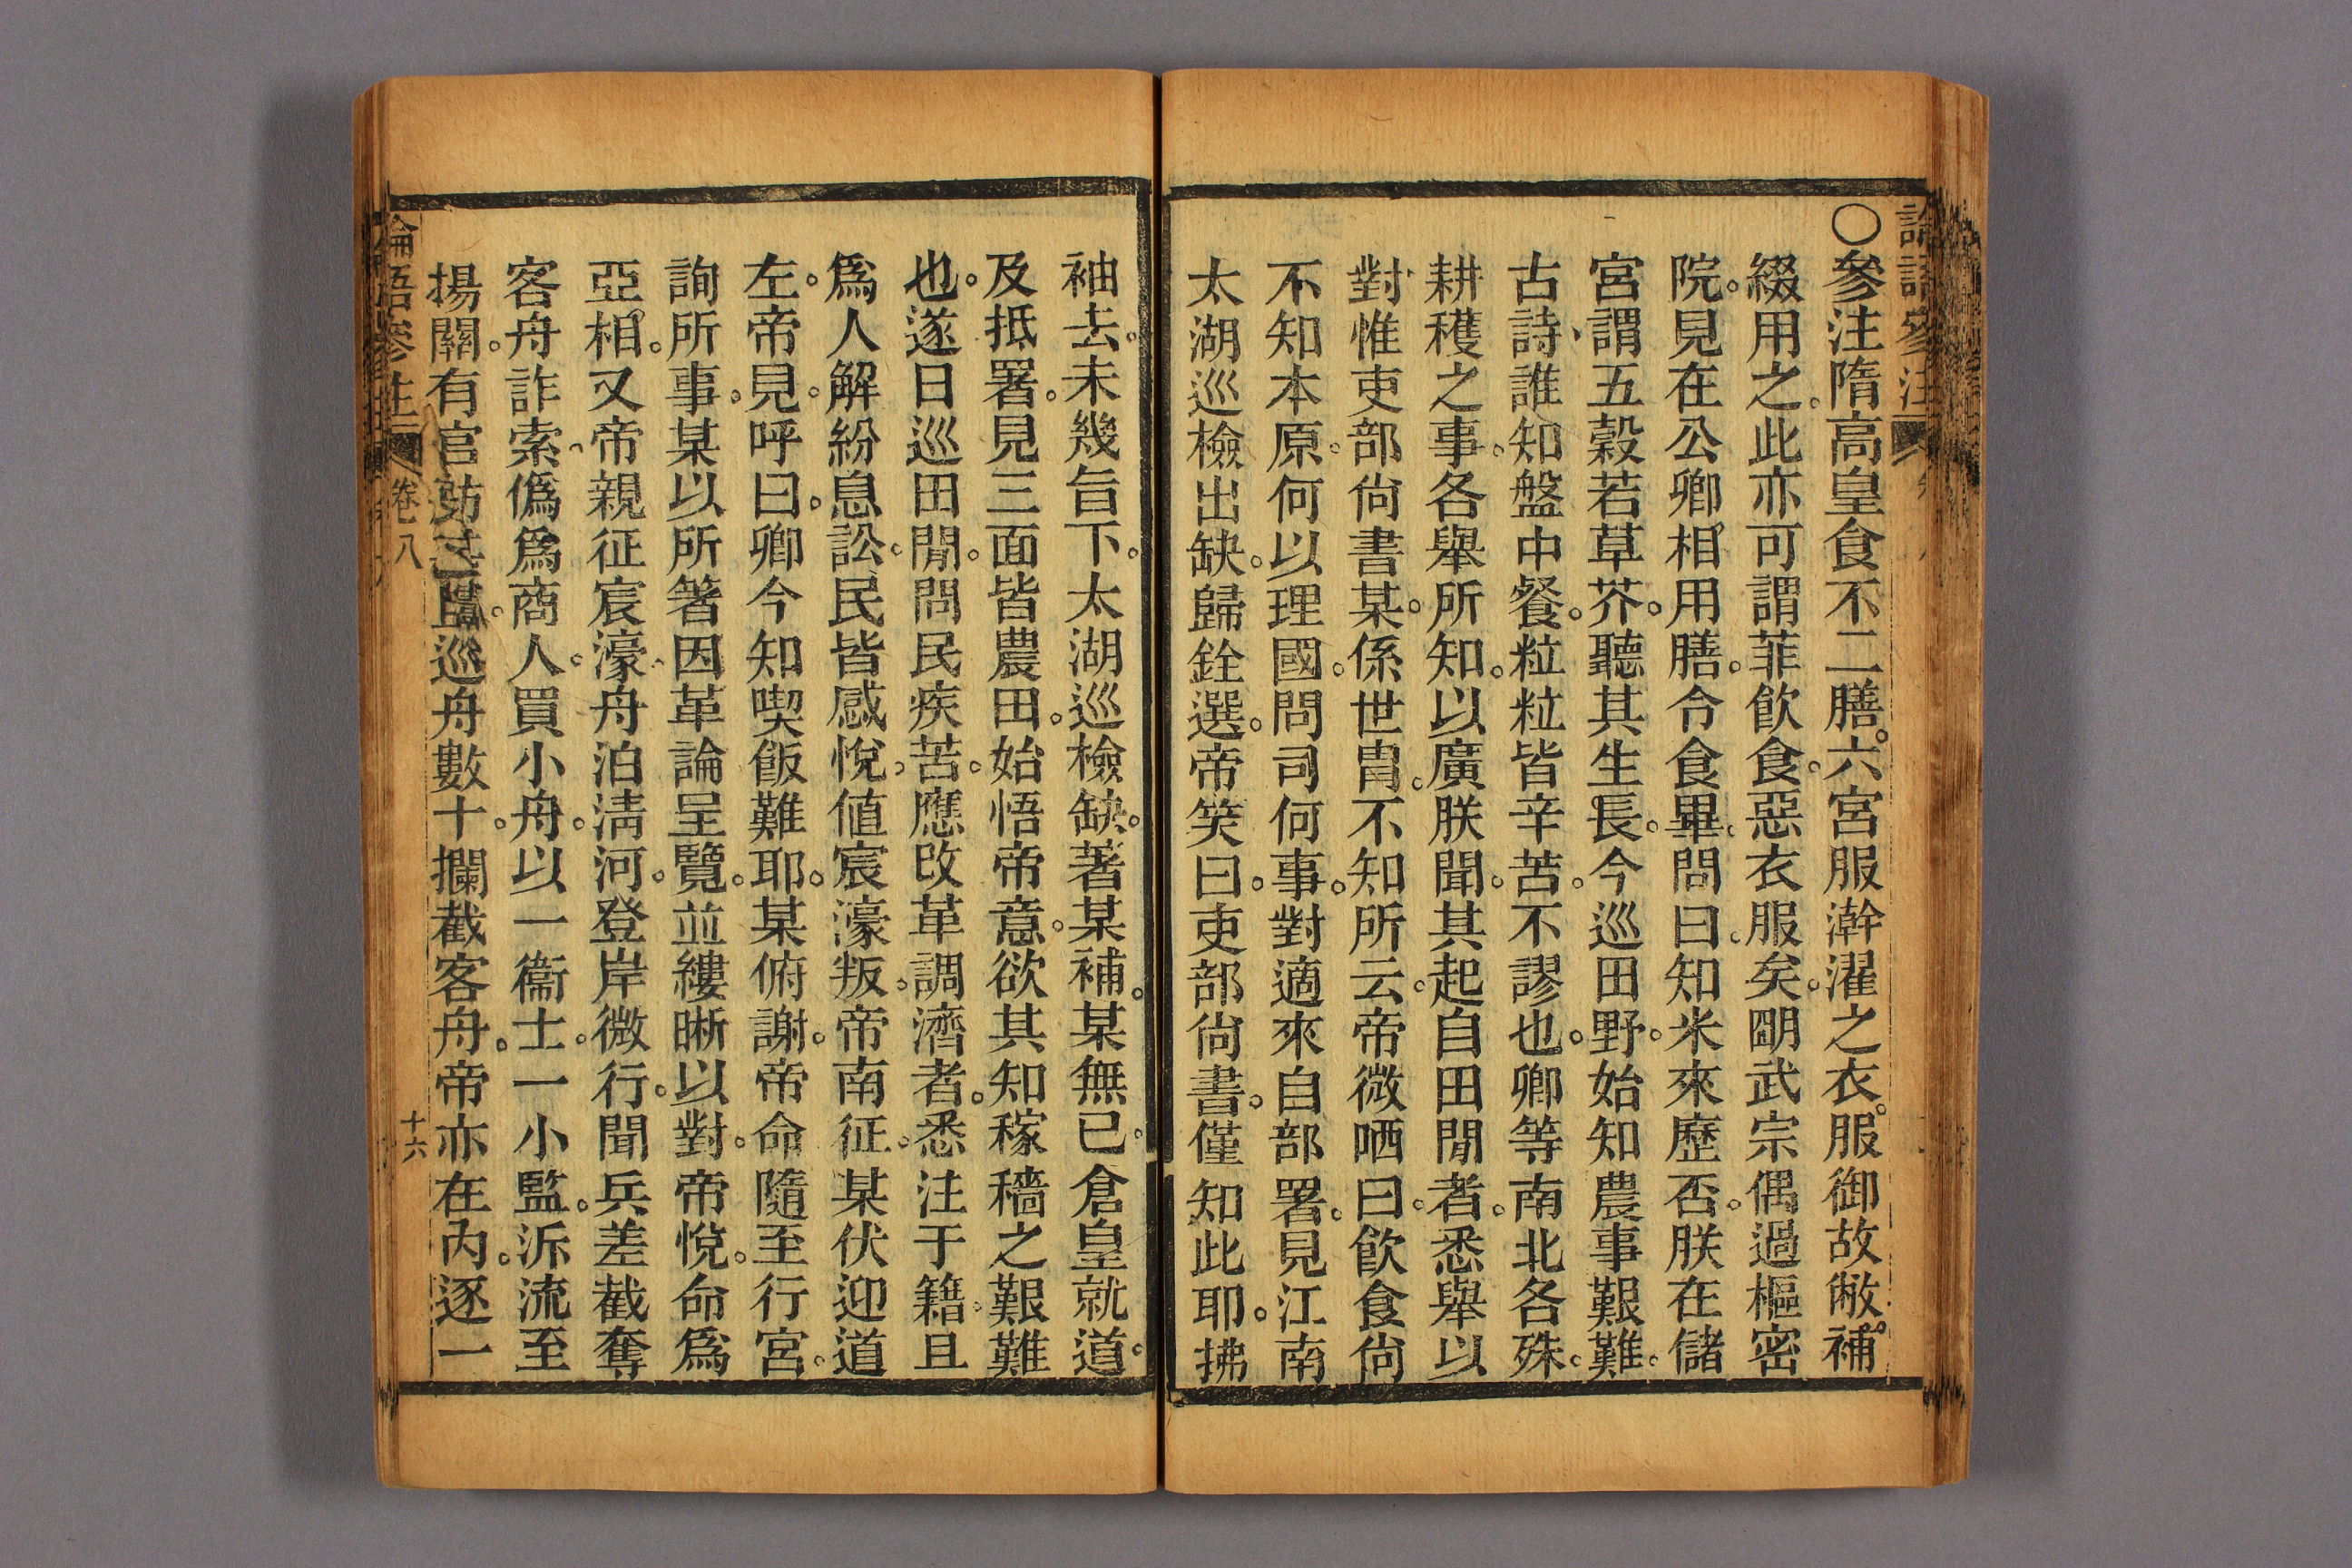 ○參注隋高皇食不二膳。六宮服澣濯之衣。服御故敝。補
綴用之。此亦可謂菲飮食。惡衣服矣。朙武宗偶過樞密
院。見在公卿相用膳。令食畢。問曰。知米來歷否。朕在儲
宮謂五穀若草芥。聽其生長。今巡田野。始知農事艱難。
古詩、誰知盤中餐。粒粒皆辛苦。不謬也。卿等南北各殊。
耕穫之事。各舉所知。以廣朕聞。其起自田閒者。悉舉以
對、惟吏部尙書某。係世胄。不知所云。帝微哂曰。飮食尙
不知本原。何以理國。問司何事。對適來自部署。見江南
太湖巡檢出缺。歸銓選。帝笑曰。吏部尙書。僅知此耶。拂
袖去。未幾旨下。太湖巡檢缺。著某補。某無已。倉皇就道。
及抵署。見三面皆農田。始悟帝意。欲其知稼穡之艱難
也。遂日巡田閒。問民疾苦。應改革調濟者。悉注于籍。且
爲人解紛息訟。民皆感悅。値宸濠叛。帝南征。某伏迎道
左。帝見。呼曰。卿今知喫飯難耶。某俯謝。帝命隨至行宮。
詢所事。某以所箸因革論呈覽。並縷晰以對。帝悅。命爲
亞相。又帝親征宸濠。舟泊淸河。登岸微行。聞兵差截奪
客舟詐索。僞爲商人。買小舟。以一衞士。一小監。泝流至
揚關。有官
巡舟數十。攔截客舟。帝亦在內。逐一
論語參注
卷八
十六